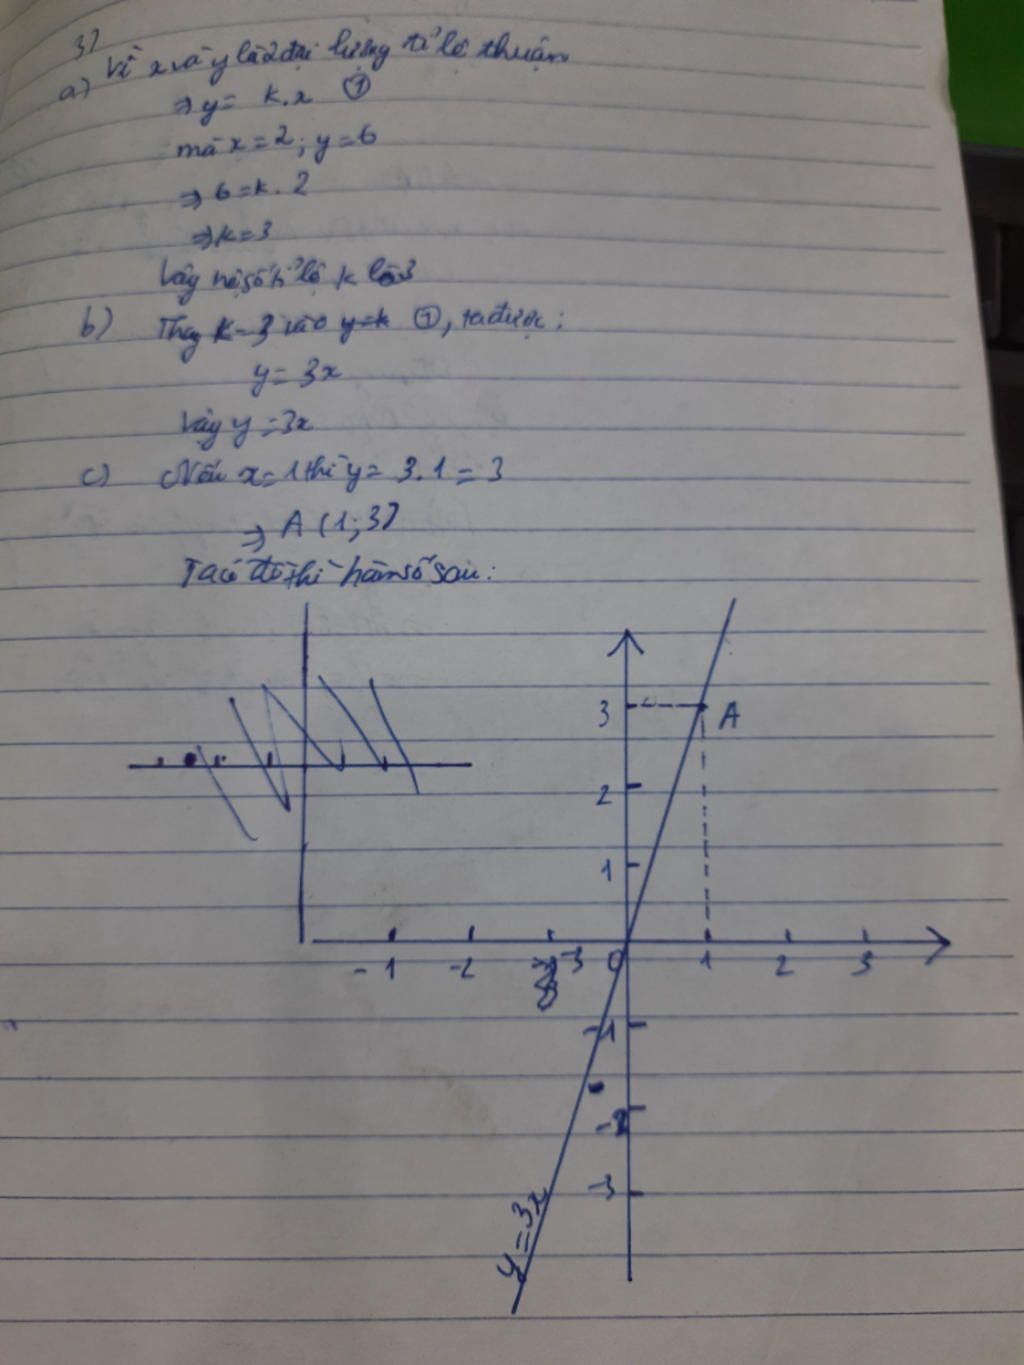 3)
Vì x và y là 2 đại lượng tỉ lệ thuận
a)
⇒ y = k.x ①
mà x = 2; y = 6
⇒ 6 = k. 2
⇒ k = 3
Vậy hệ số tỉ lệ k là 3
b) Thay k = 3 vào ①, ta được:
y = 3x
Vậy y = 3x
c) Nếu x = 1 thì y = 3.1 = 3
⇒ A (1; 3)
Ta có đồ thị hàm số sau:
3 A
2
1
-1 -2 -3 O 1 2 3
-1
-2
-3
y = 3x